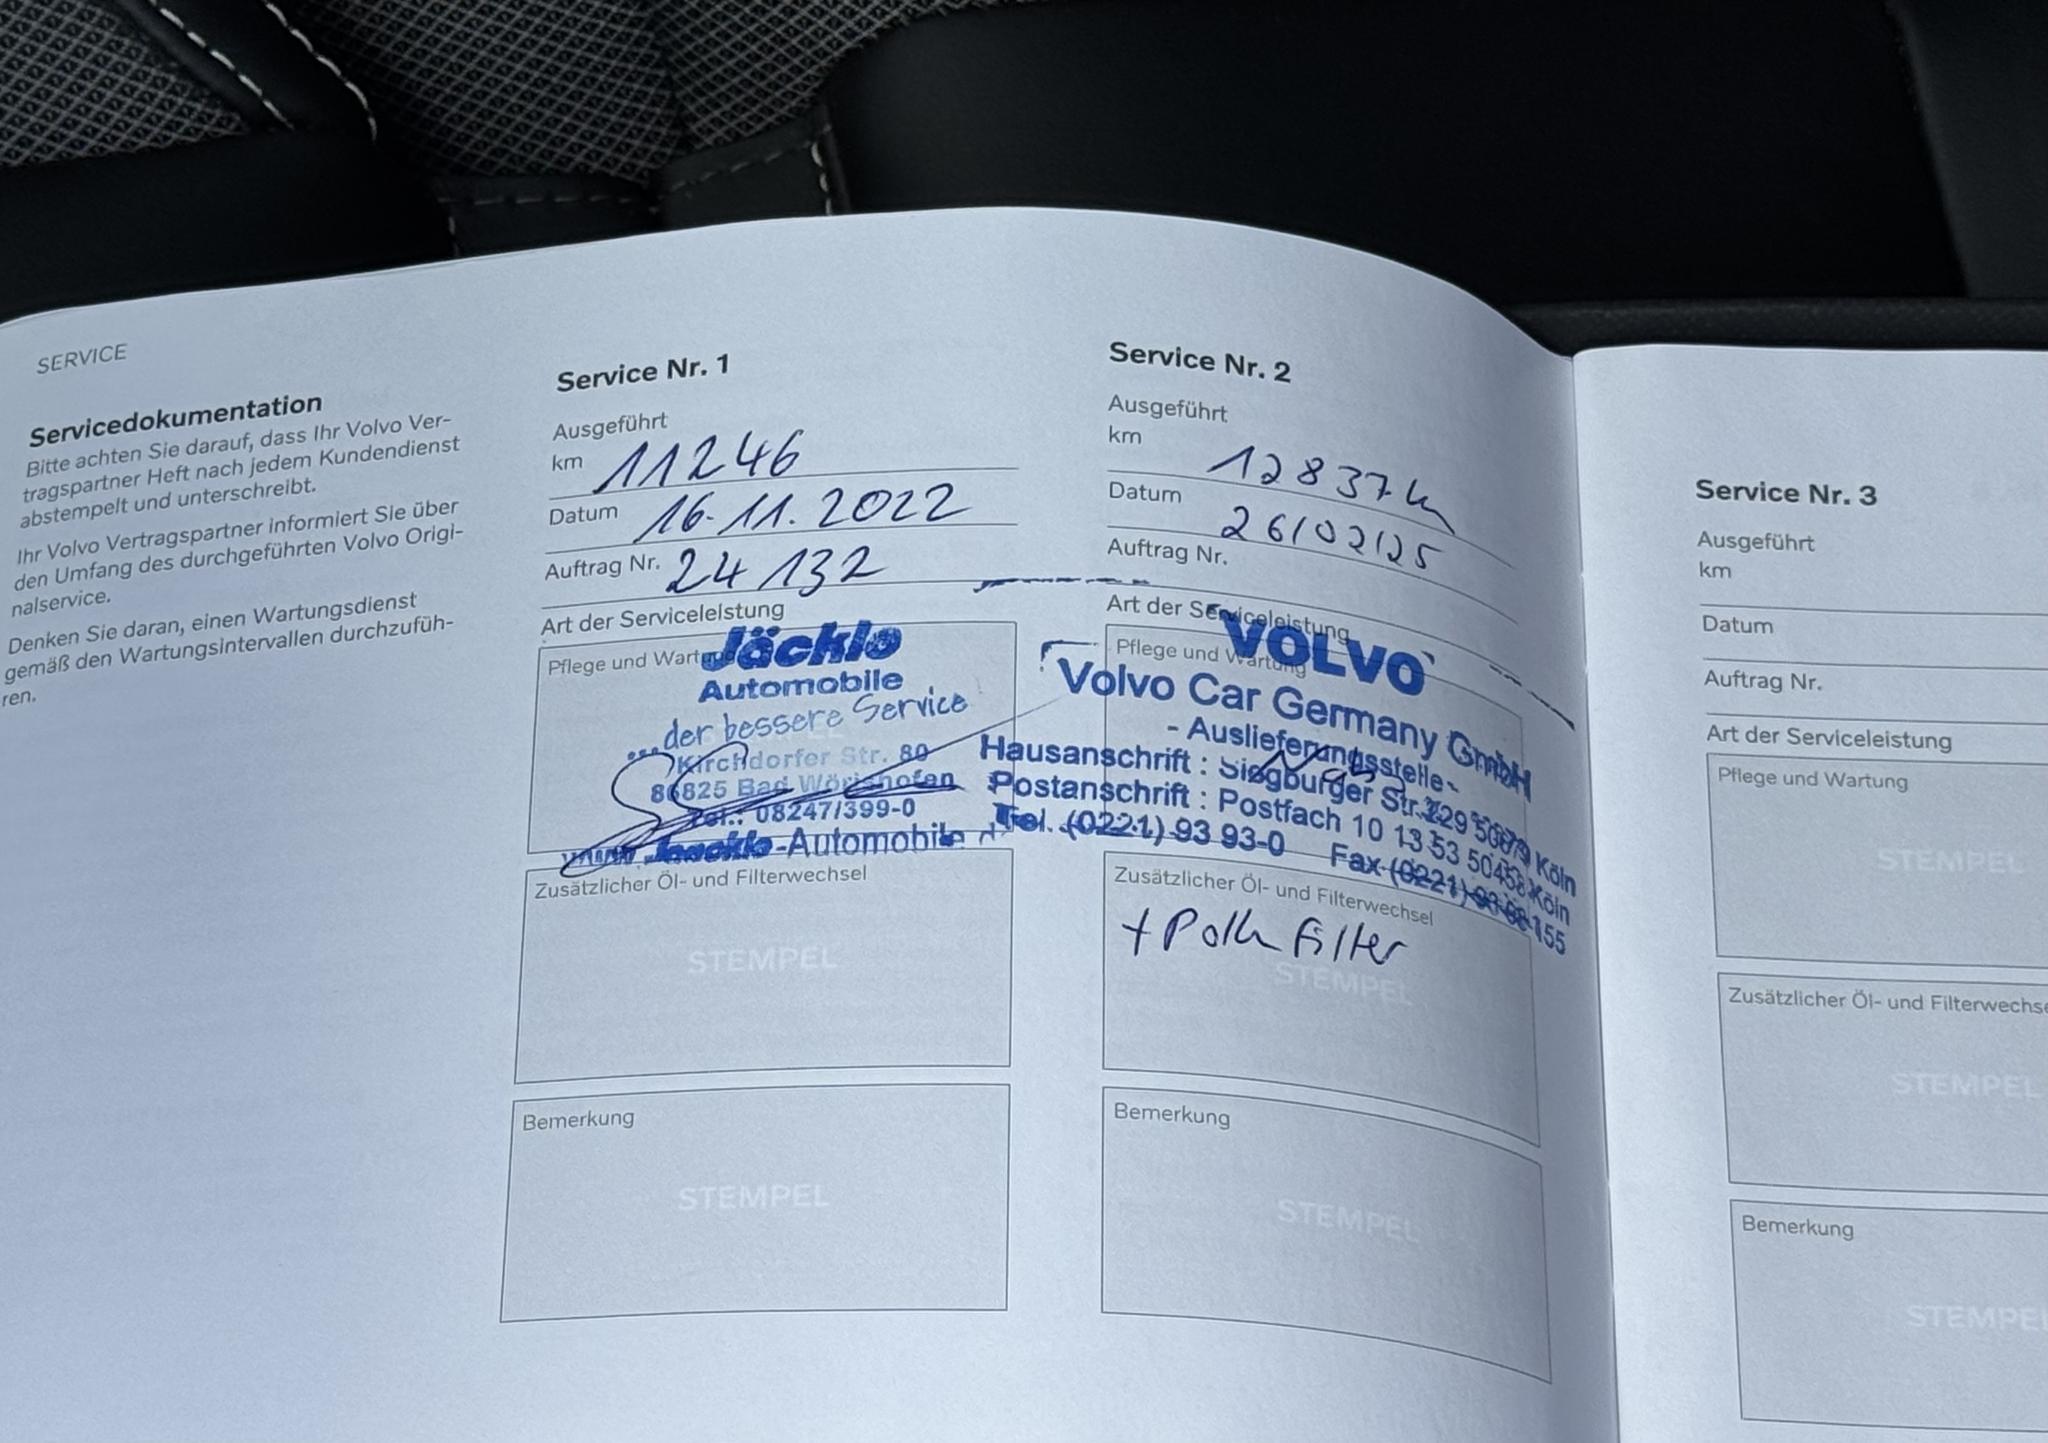 SERVICE
Servicedokumentation
Bitte achten Sie darauf, dass Ihr Volvo Ver-
tragspartner Heft nach jedem Kundendienst
abstempelt und unterschreibt.
Ihr Volvo Vertragspartner informiert Sie über
den Umfang des durchgeführten Volvo Origi-
nalservice.
Denken Sie daran, einen Wartungsdienst
gemäß den Wartungsintervallen durchzufüh-
ren.
Service Nr. 1
Ausgeführt
km 11246
Datum 16.11.2022
Auftrag Nr. 24132
Art der Serviceleistung
Pflege und Wartung
Jäckle
Automobile
...der bessere Service
Kirchdorfer Str. 80
86825 Bad Wörishofen
Tel.: 08247/399-0
www.Jaeckle-Automobile
Zusätzlicher Öl- und Filterwechsel
STEMPEL
Bemerkung
STEMPEL
Service Nr. 2
Ausgeführt
km 12837 km
Datum 26/02/25
Auftrag Nr.
Art der Serviceleistung
Pflege und Wartung
VOLVO
Volvo Car Germany GmbH
- Auslieferungsstelle-
Hausanschrift : Siegburger Str.229 50679 Köln
Postanschrift : Postfach 10 13 53 50453 Köln
Tel. (0221) 93 93-0 Fax (0221) 155
Zusätzlicher Öl- und Filterwechsel
+ Polln Filter
STEMPEL
Bemerkung
STEMPEL
Service Nr. 3
Ausgeführt
km
Datum
Auftrag Nr.
Art der Serviceleistung
Pflege und Wartung
STEMPEL
Zusätzlicher Öl- und Filterwechse
STEMPEL
Bemerkung
STEMPEL